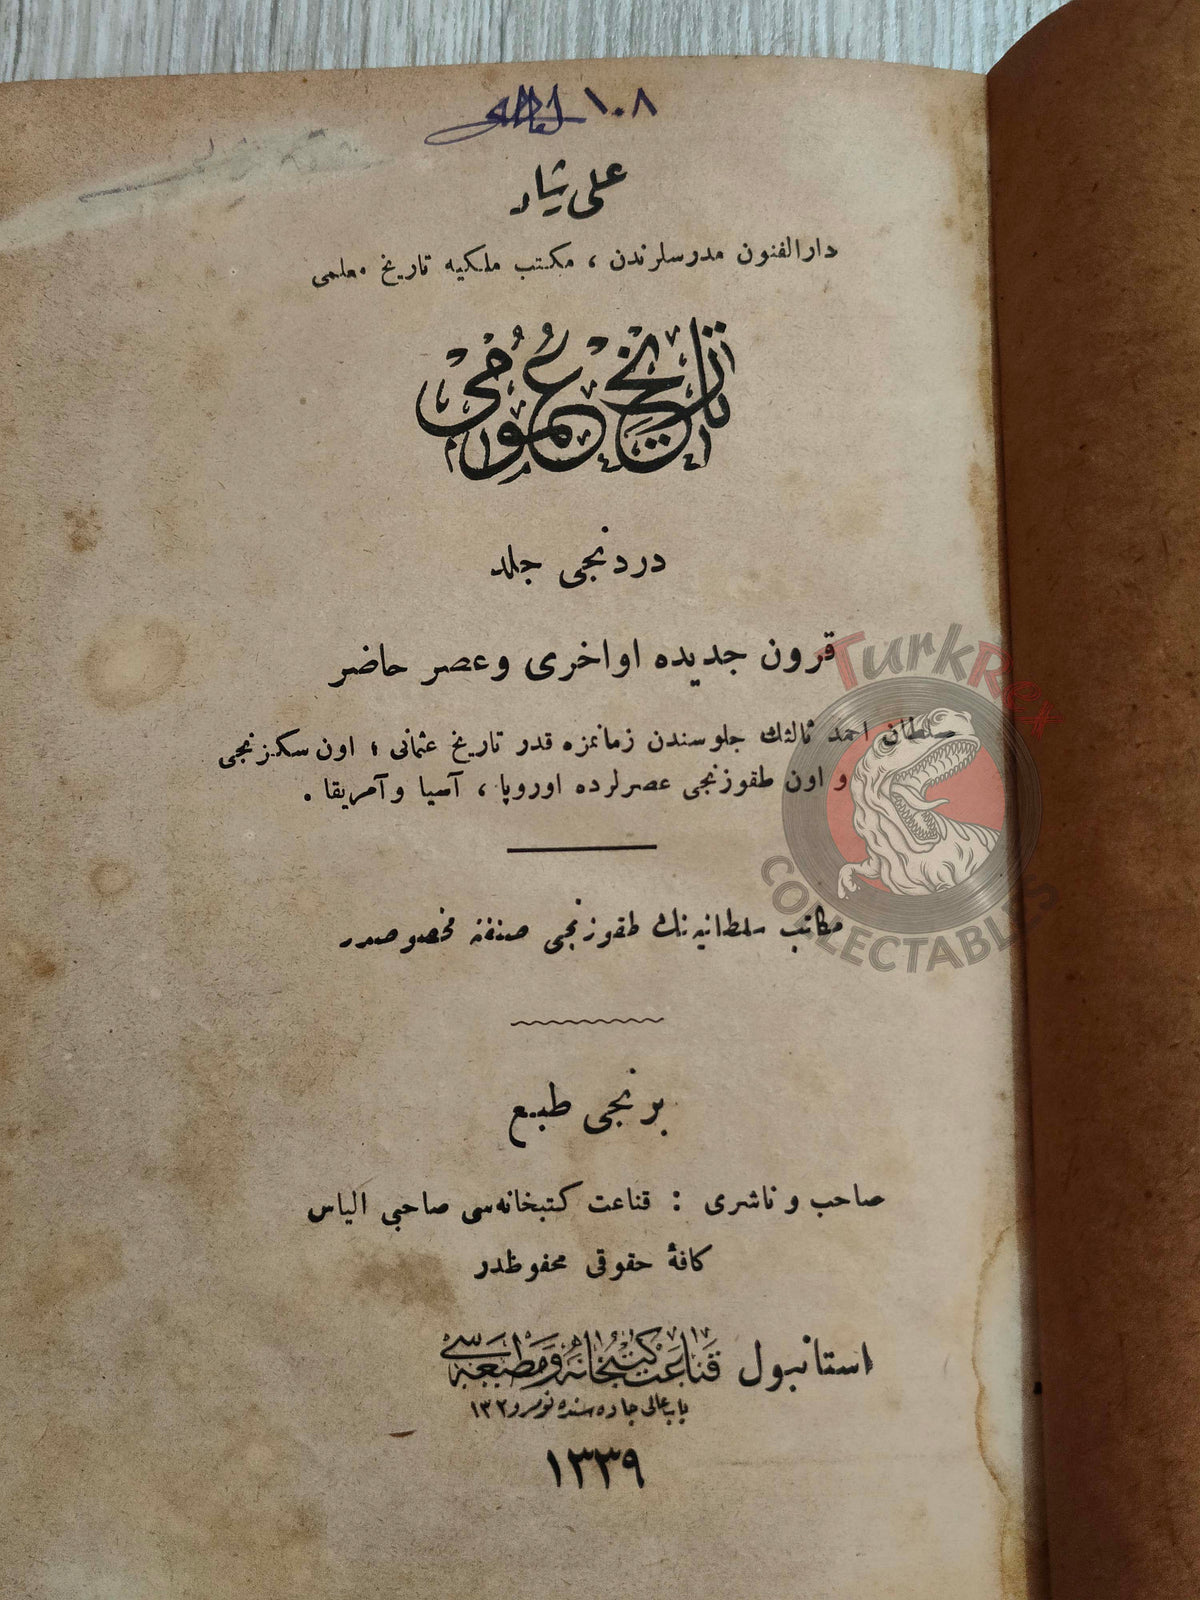 ١٠٨
علی رشاد
دارالفنون مدرسلرندن ، مكتب ملكیه تاریخ معلمی
تاریخ عمومی
دردنجی جلد
قرون جدیده اواخری وعصر حاضر
سلطان احمد ثالثك جلوسندن زمانمزه قدر تاریخ عثمانی ؛ اون سكزنجی
و اون طقوزنجی عصرلرده اوروپا ، آسیا وآمریقا .
مكاتب سلطانیه نك طقوزنجی صنفنه مخصوصدر
برنجی طبع
صاحب و ناشری : قناعت كتبخانه‌سی صاحبی الیاس
كافهٔ حقوقی محفوظدر
استانبول قناعت كتبخانه و مطبعه سی
باب عالی جاده سنده نومرو ١٣٢
١٣٣٩
TurkRex
COLLECTABLES